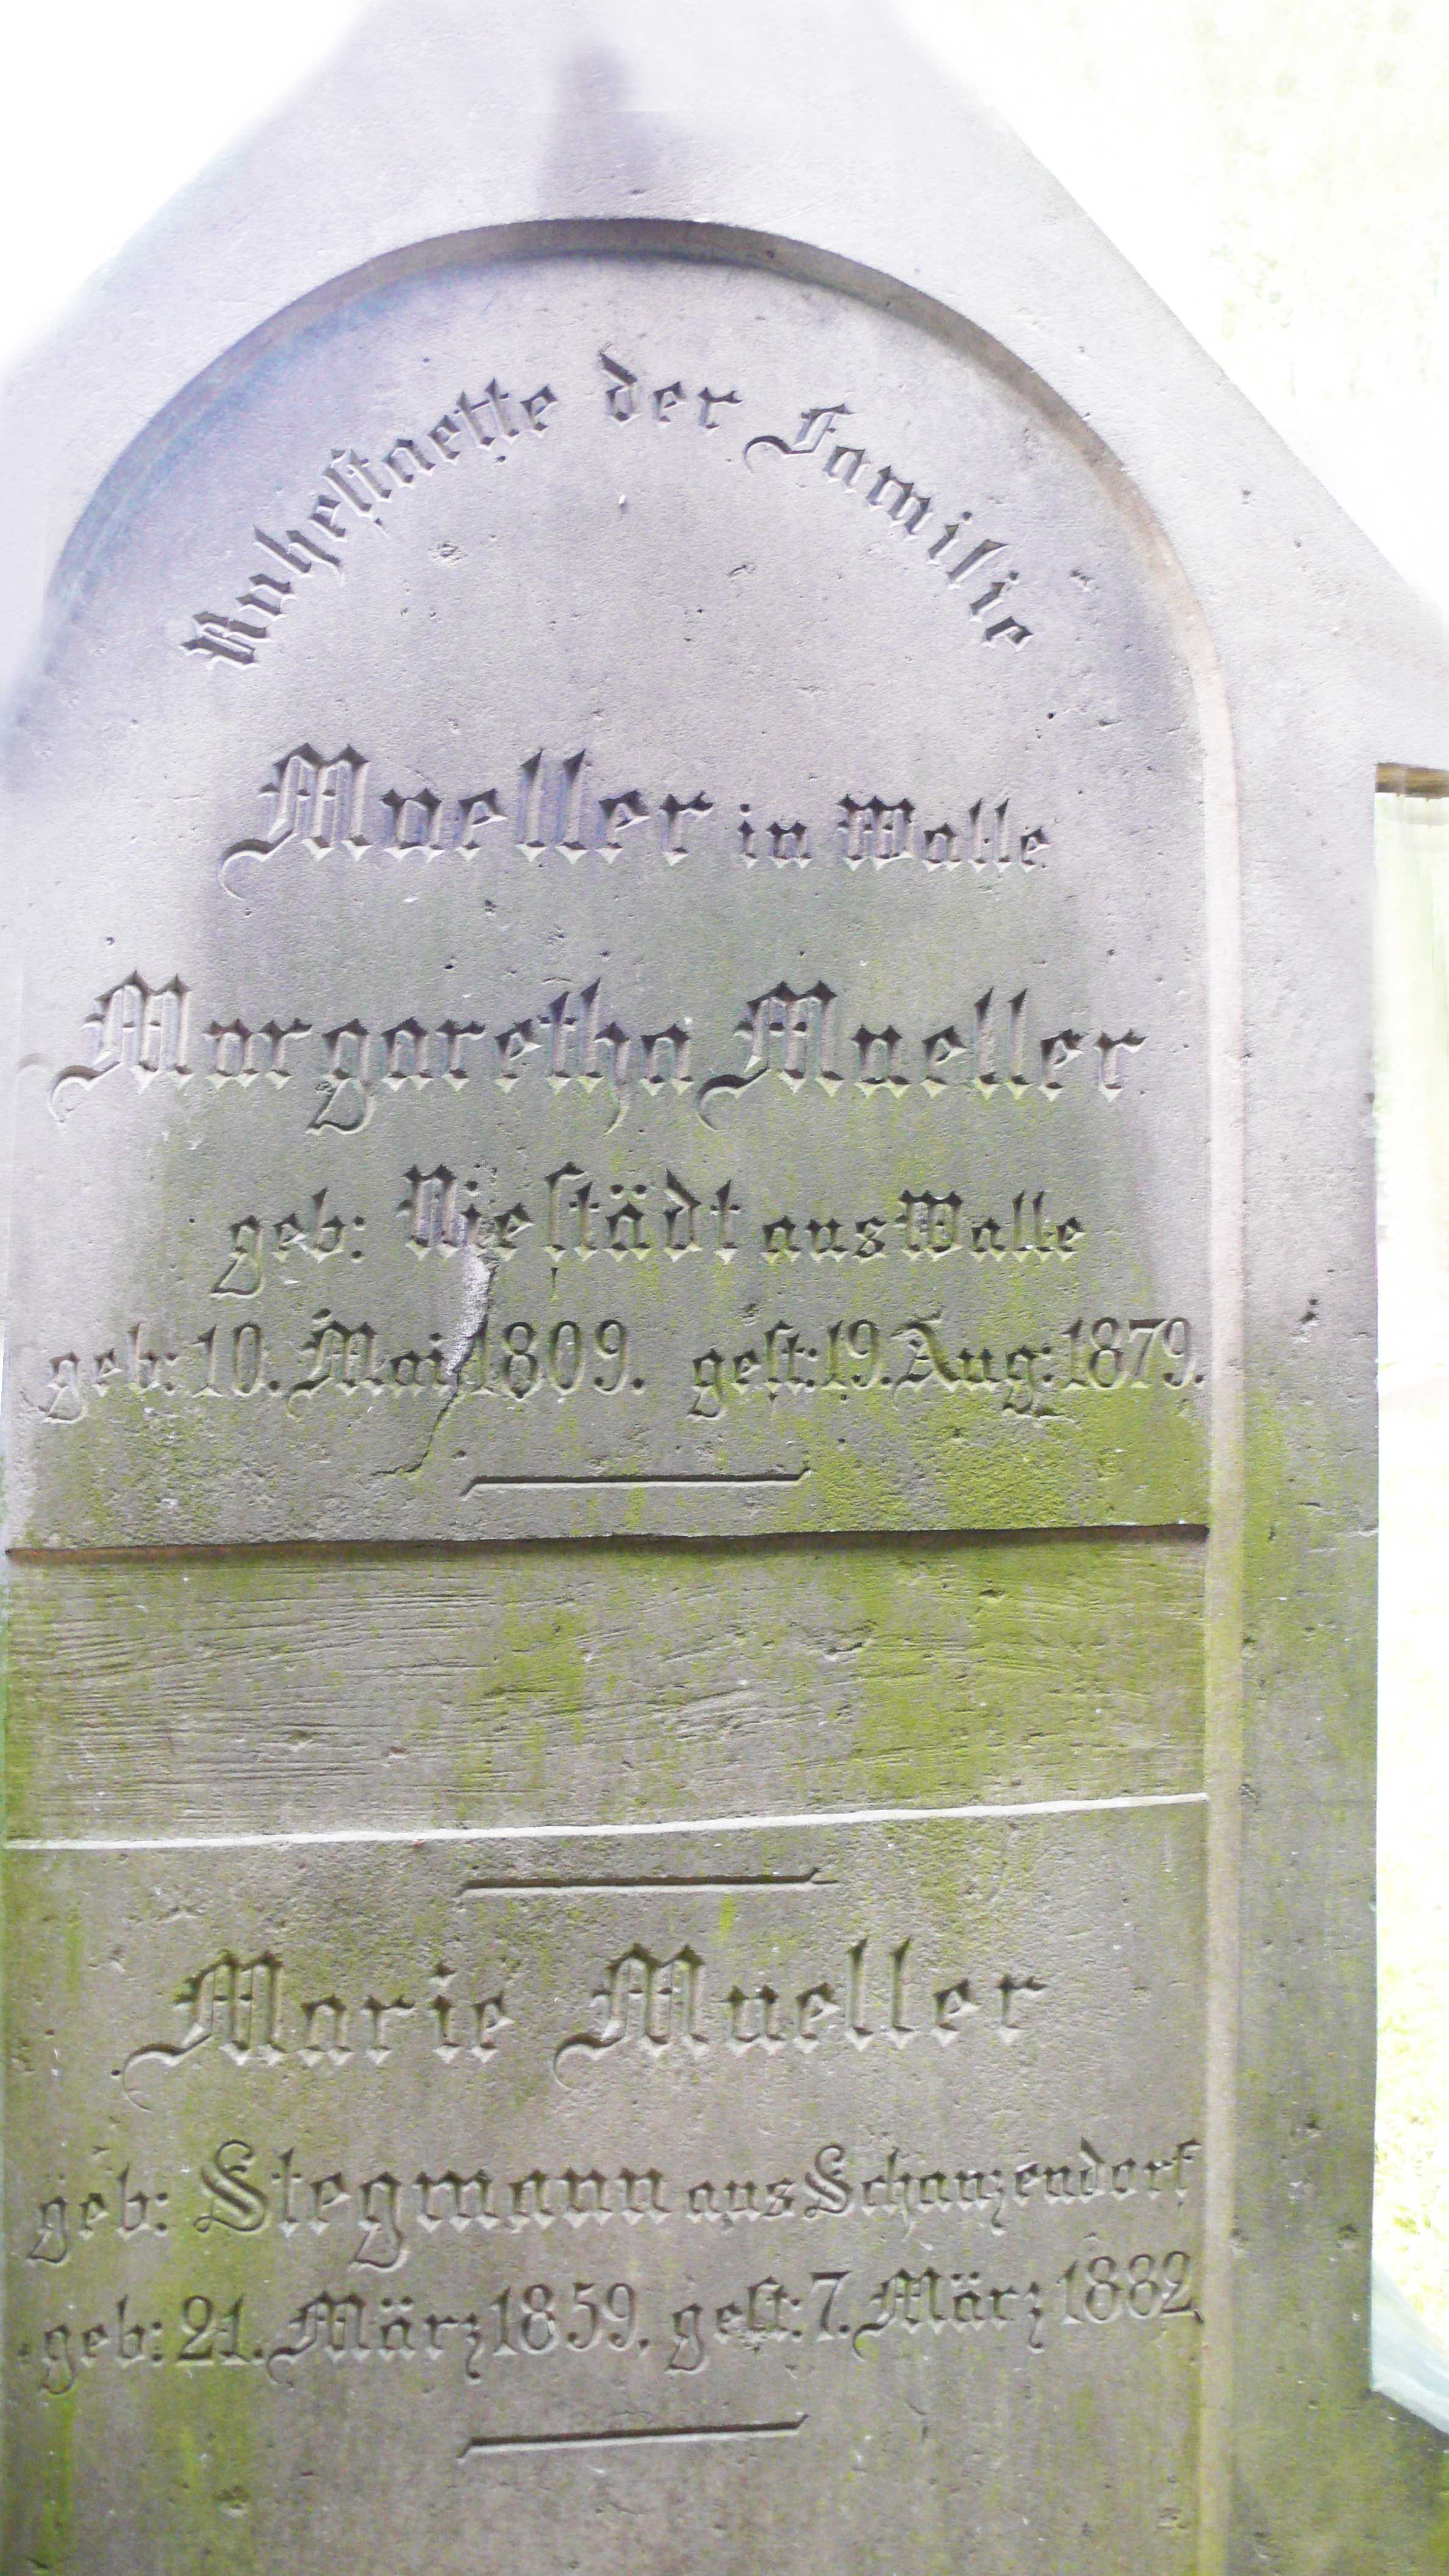 Ruhestaette der Familie
Mueller in Walle
Margaretha Mueller
geb: Niestädt aus Walle
geb: 10. Mai 1809. gest: 19. Aug: 1879.
Marie Mueller
geb: Stegmann aus Schanzendorf
geb: 21. März 1859. gest: 7. März 1882.